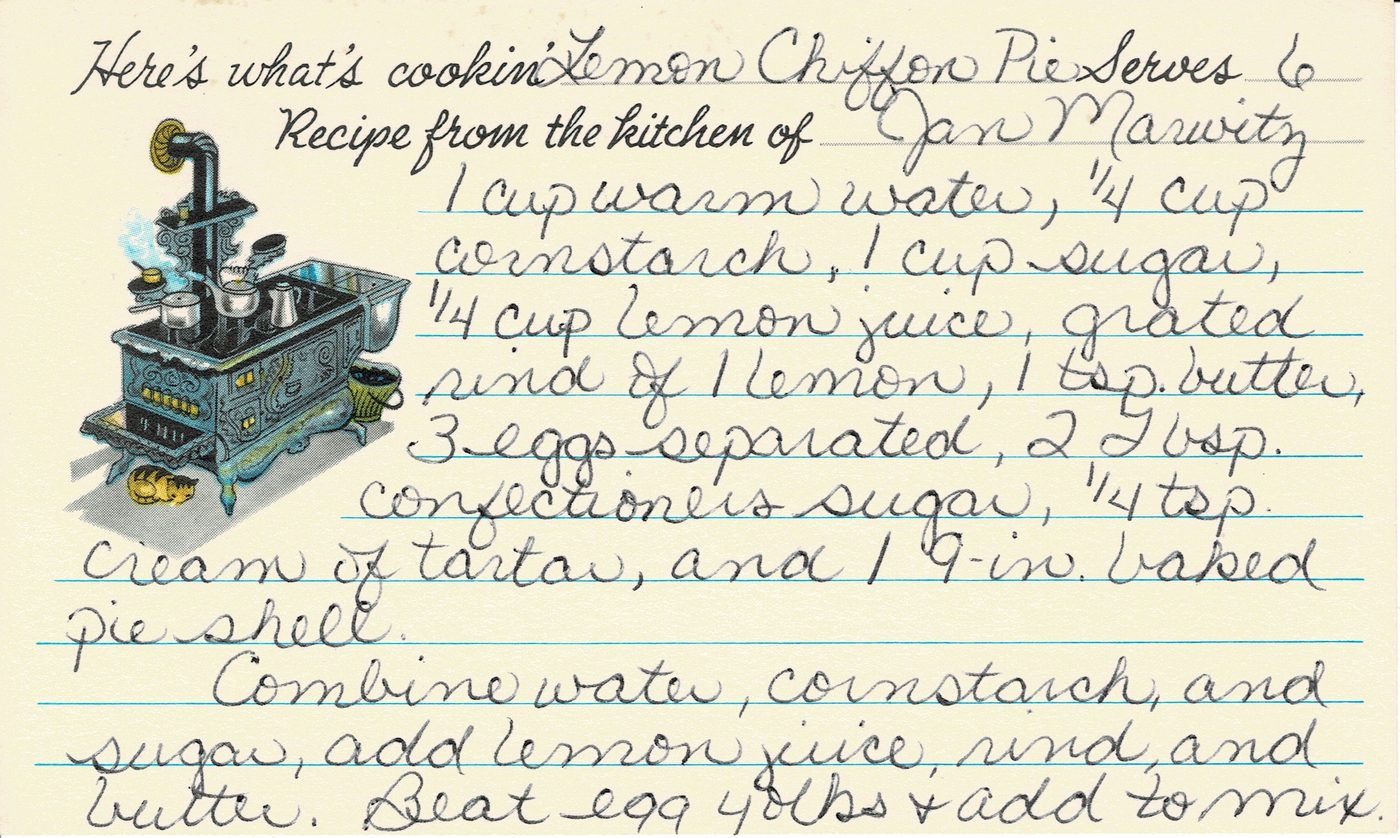 Here's what's cookin' Lemon Chiffon Pie Serves 6
Recipe from the kitchen of Jan Marwitz
1 cup warm water, 1/4 cup
cornstarch, 1 cup sugar,
1/4 cup lemon juice, grated
rind of 1 lemon, 1 tsp. butter,
3 eggs separated, 2 Tbsp.
confectioners sugar, 1/4 tsp.
cream of tartar, and 1 9-in. baked
pie shell.
Combine water, cornstarch, and
sugar, add lemon juice, rind, and
butter. Beat egg yolks + add to mix.